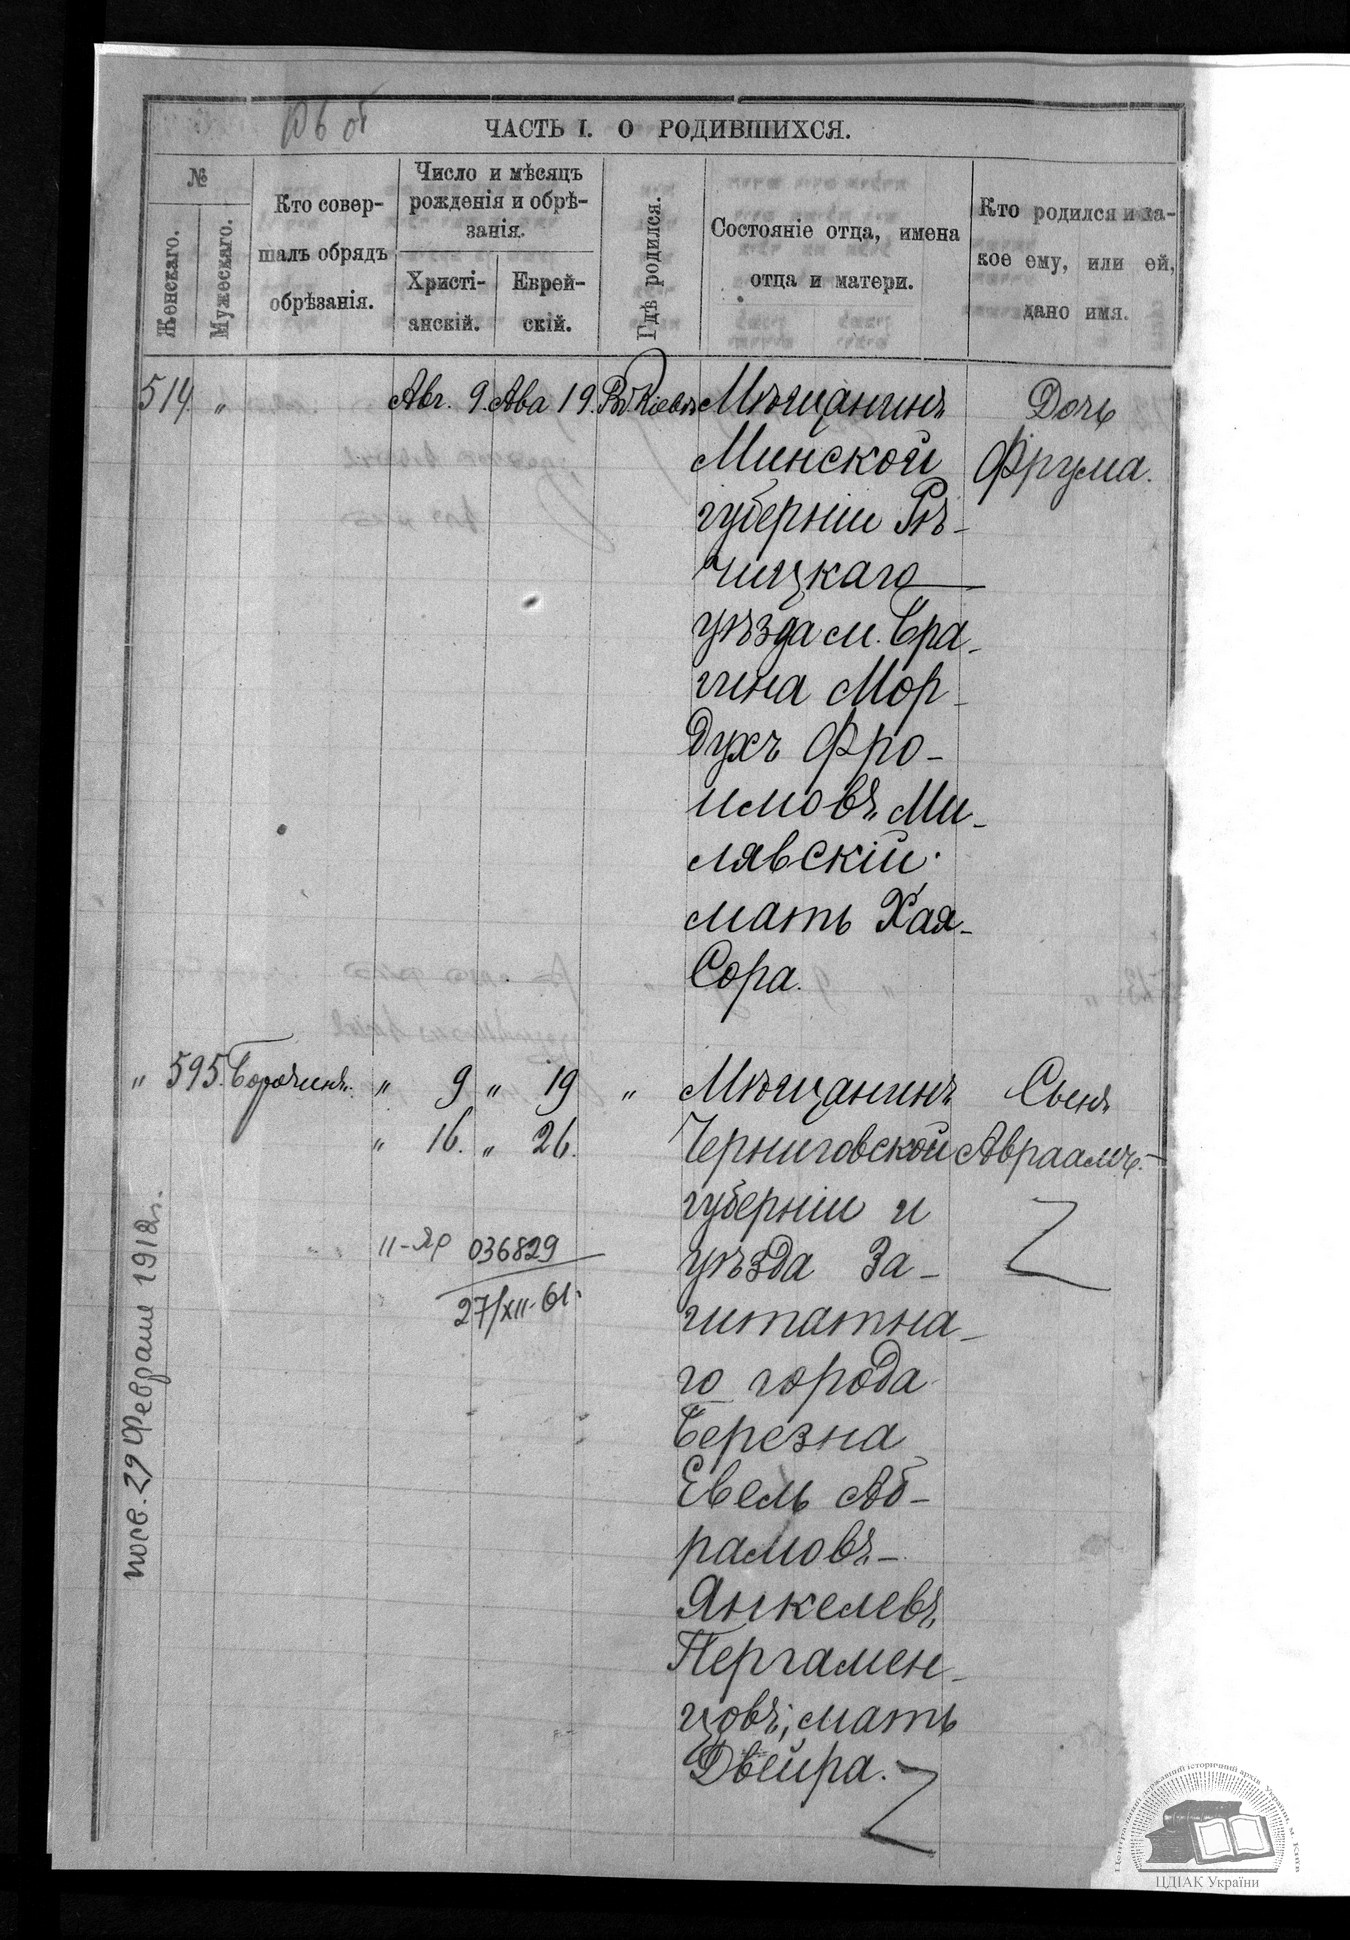 ЧАСТЬ I. О РОДИВШИХСЯ.
№
Женскаго.
Мужескаго.
Кто совер-
шалъ обрядъ
обрѣзанія.
Число и мѣсяцъ
рожденія и обрѣ-
занія.
Христі-
анскій.
Еврей-
скій.
Гдѣ родился.
Состояніе отца, имена
отца и матери.
Кто родился и ка-
кое ему, или ей,
дано имя.
514 " Авг. 9. Ава 19. Въ Кіевѣ Мѣщанинъ Дочь
Минской Фрума.
губерніи Рѣ-
чицкаго
уѣзда м. Бра-
гина Мор-
духъ Фро-
имовъ Ми-
лявскій.
мать Хая-
Сора.
" 595. Борочинъ. " 9 " 19 " Мѣщанинъ Сынъ
" 16. " 26. Черниговской Авраамъ.
губерніи и
уѣзда За-
штатна-
го города
Березна
Евель Аб-
рамовъ-
Янкелевъ
Пергамен-
цовъ, мать
Двейра.
II-ЯР 036829
27/XII-61.
29 Февраля 1912г.
Центральний державний історичний архів України, м. Київ
ЦДІАК України